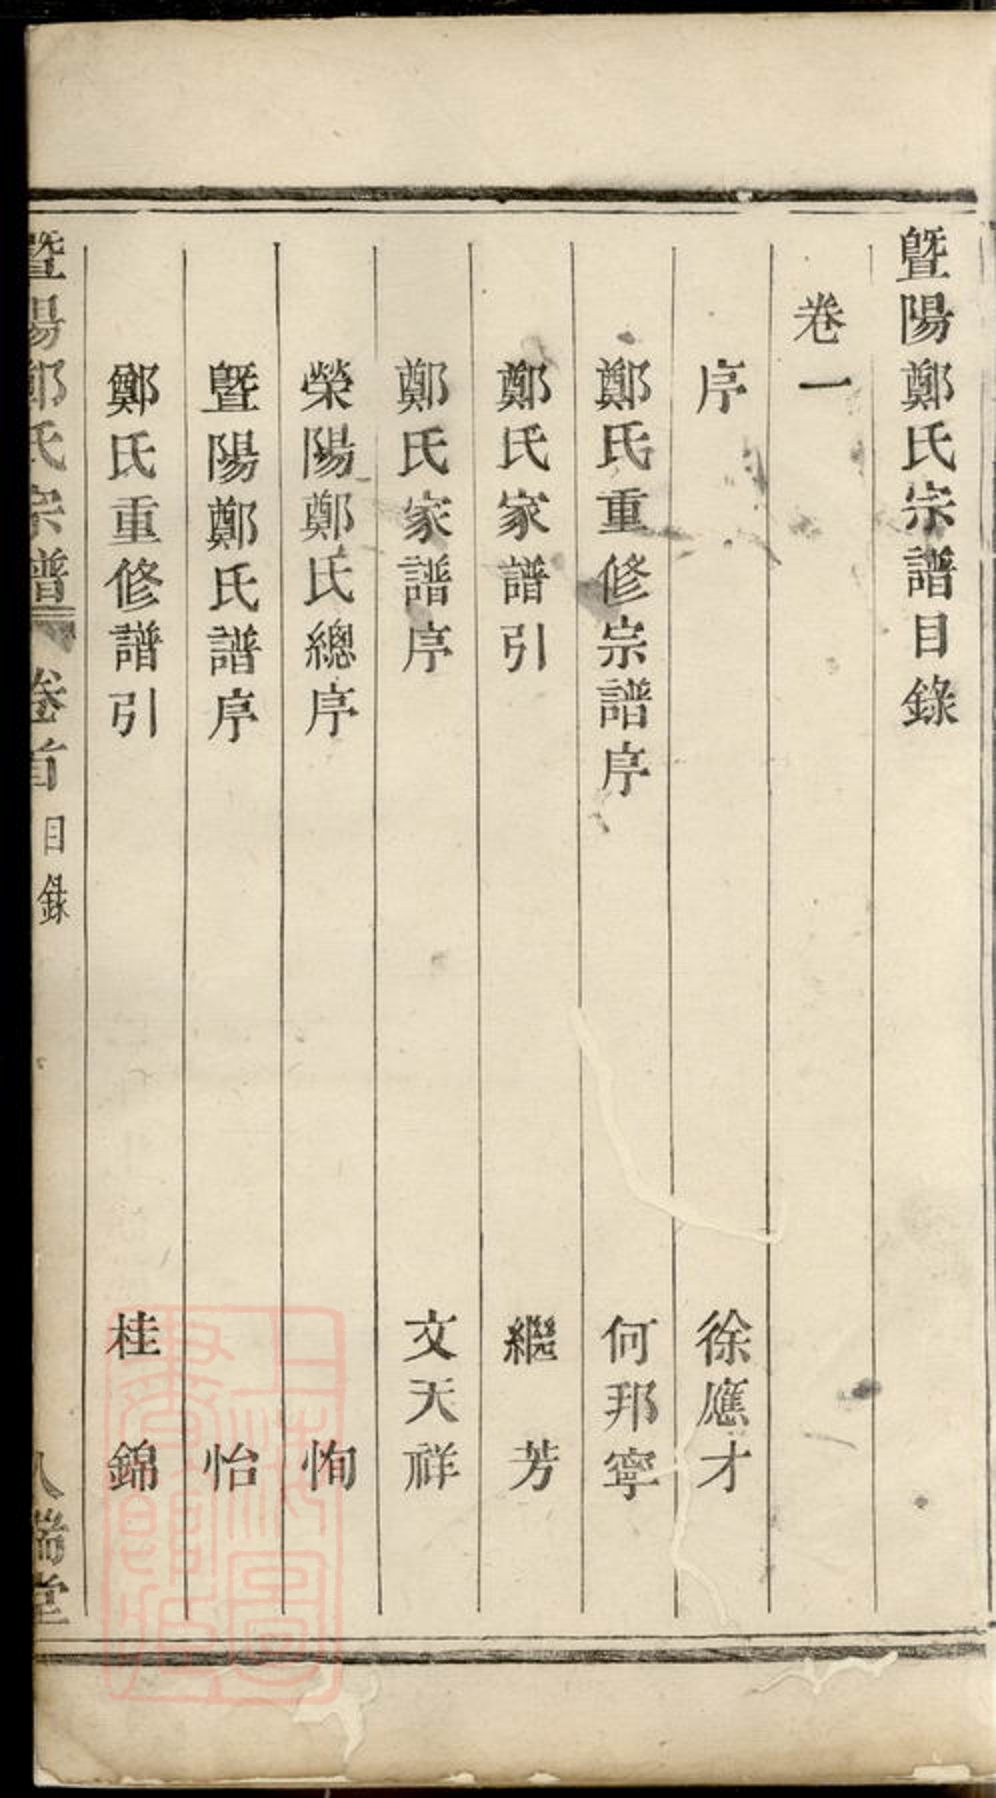 暨陽鄭氏宗譜目錄
卷一
序 徐應才
鄭氏重修宗譜序 何邦寧
鄭氏家譜引 繼芳
鄭氏家譜序 文天祥
榮陽鄭氏總序 恂
暨陽鄭氏譜序 怡
鄭氏重修譜引 桂錦
暨陽鄭氏宗譜 卷首 目錄 八瑞堂